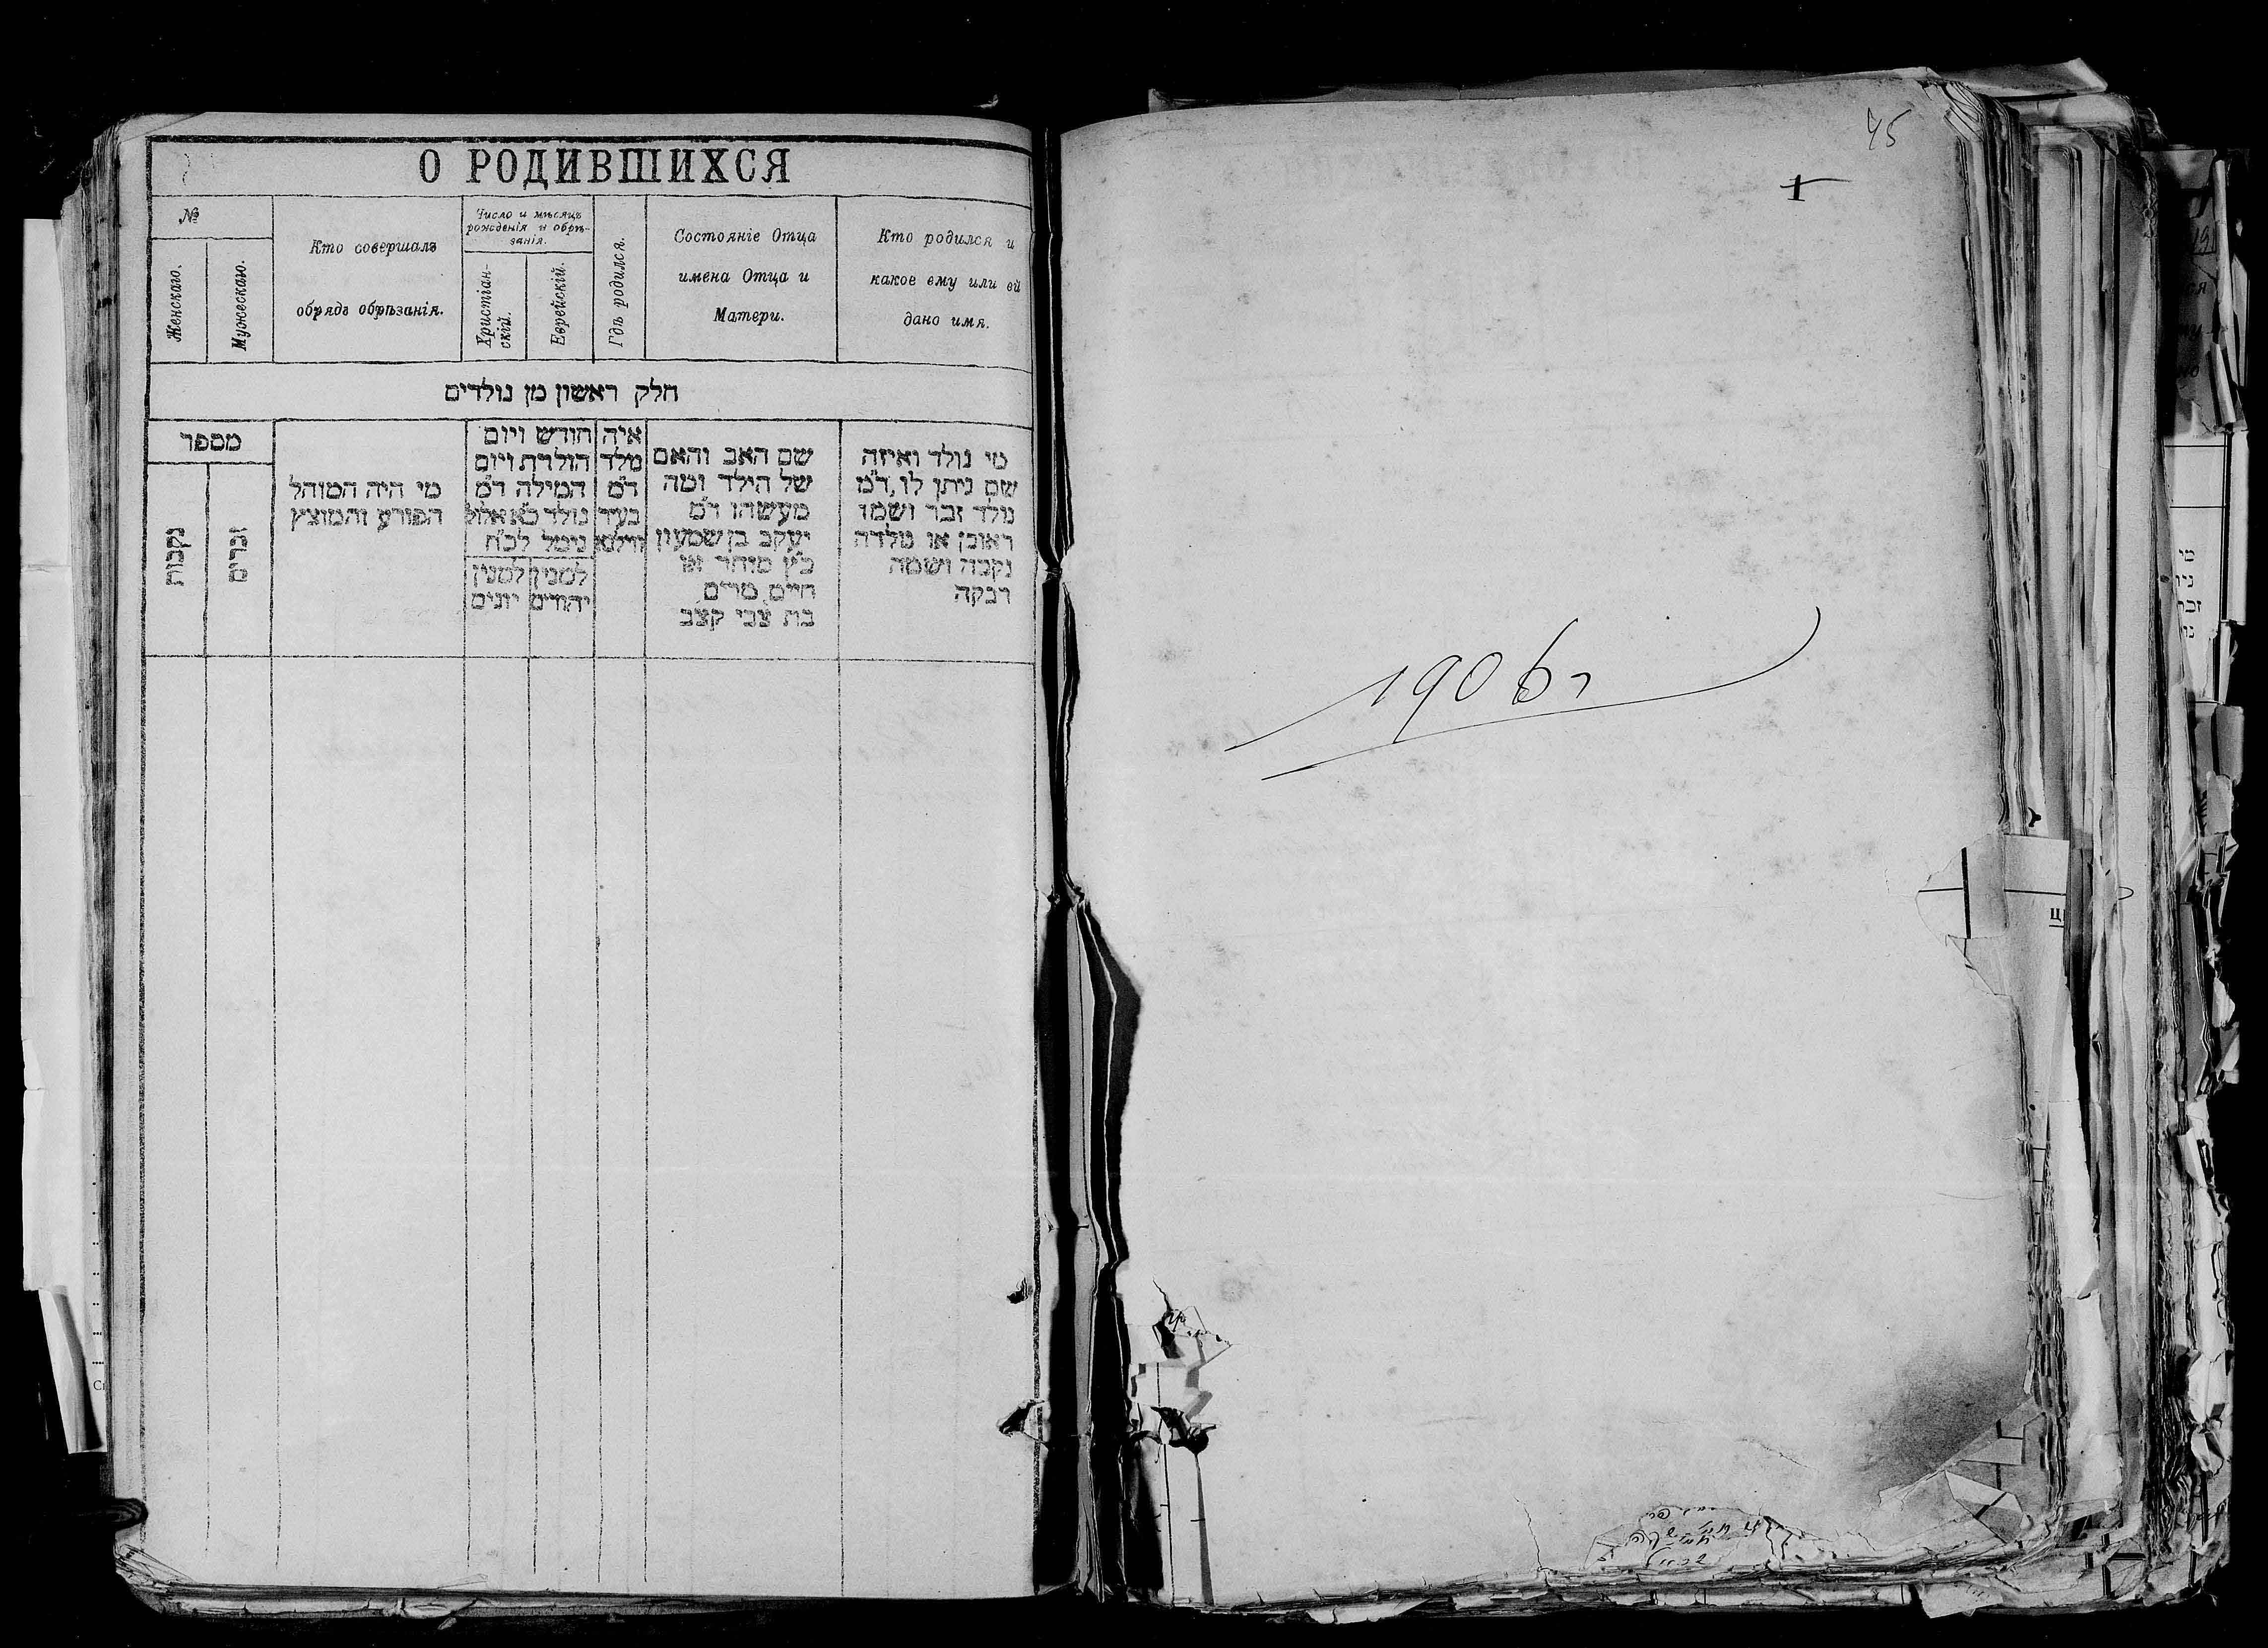 О РОДИВШИХСЯ
№
Женскаго.
Мужескаго.
Кто совершалъ
обрядъ обрѣзанія.
Число и мѣсяцъ
рожденія и обрѣ-
занія.
Христіан-
скій.
Еврейскій.
Гдѣ родился.
Состояніе Отца
имена Отца и
Матери.
Кто родился и
какое ему или ей
дано имя.
חלק ראשון מן נולדים
מספר
נקבות
זכרים
מי היה המוהל
הפורע והמוצץ
חודש ויום
הולדת ויום
המילה ד״מ
נולד כ״א אלול
נימל לכ״ח
למנין
יונים
למנין
יהודים
איה
מלד
ד״מ
בעיר
ווילנא
שם האב והאם
של הילד ומה
מעשהו ד״מ
יעקב בן שמעון
כ״ץ סוחר או
חייט, מרים
בת צבי קצב
מי נולד ואיזה
שם ניתן לו, ד״מ
נולד זכר ושמו
ראובן או נולדה
נקבה ושמה
רבקה
45
1
1906 г